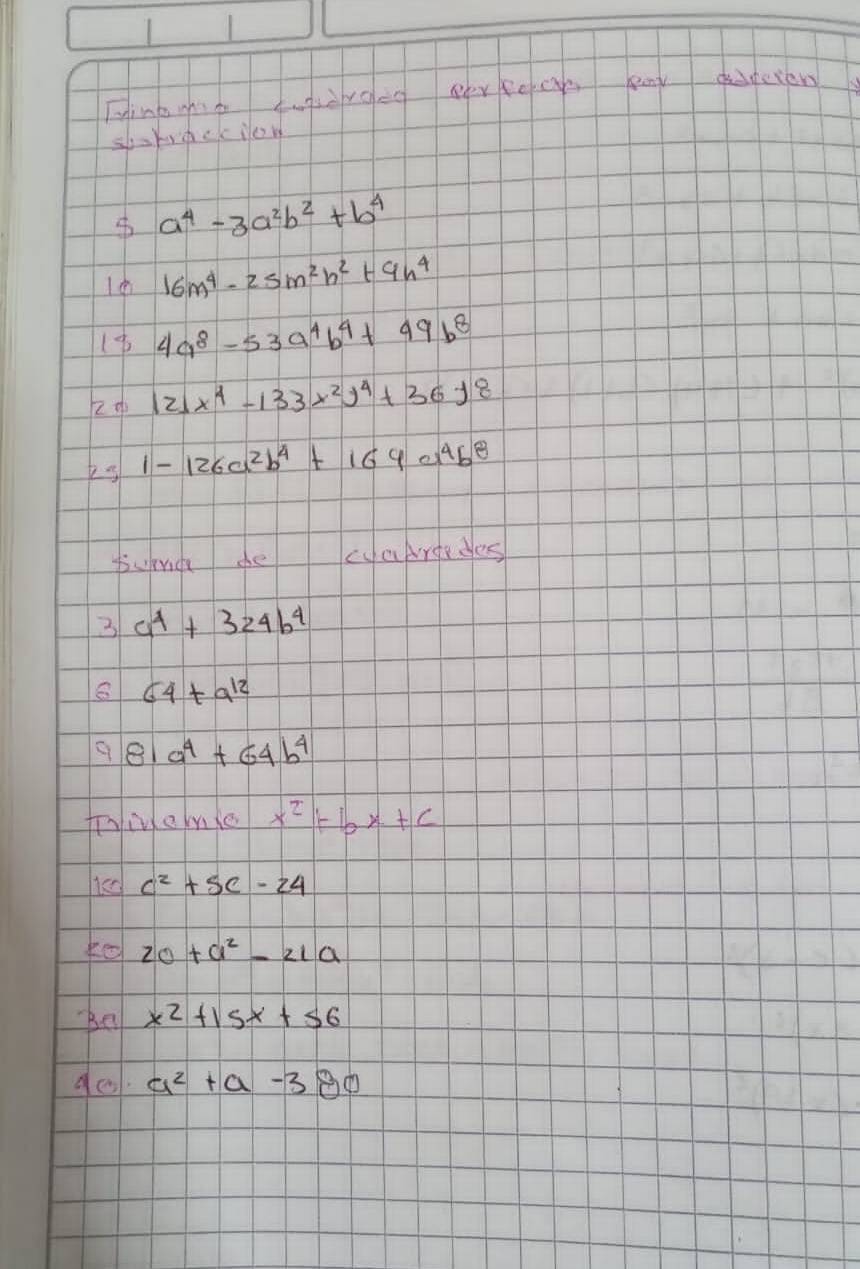 Trinomio cuadrado perfecto por adicion y
sustraccion
5 a⁴ - 3a²b² + b⁴
10 16m⁴ - 25m²n² + 9n⁴
15 4a⁸ - 53a⁴b⁴ + 49b⁸
20 121x⁴ - 133x²y⁴ + 36y⁸
25 1 - 126a²b⁴ + 169a⁴b⁸
Suma de cuadrados
3 a⁴ + 324b⁴
6 64 + a¹²
9 81a⁴ + 64b⁴
Trinomio x² + bx + c
10 c² + 5c - 24
20 20 + a² - 21a
30 x² + 15x + 56
40. a² + a - 380